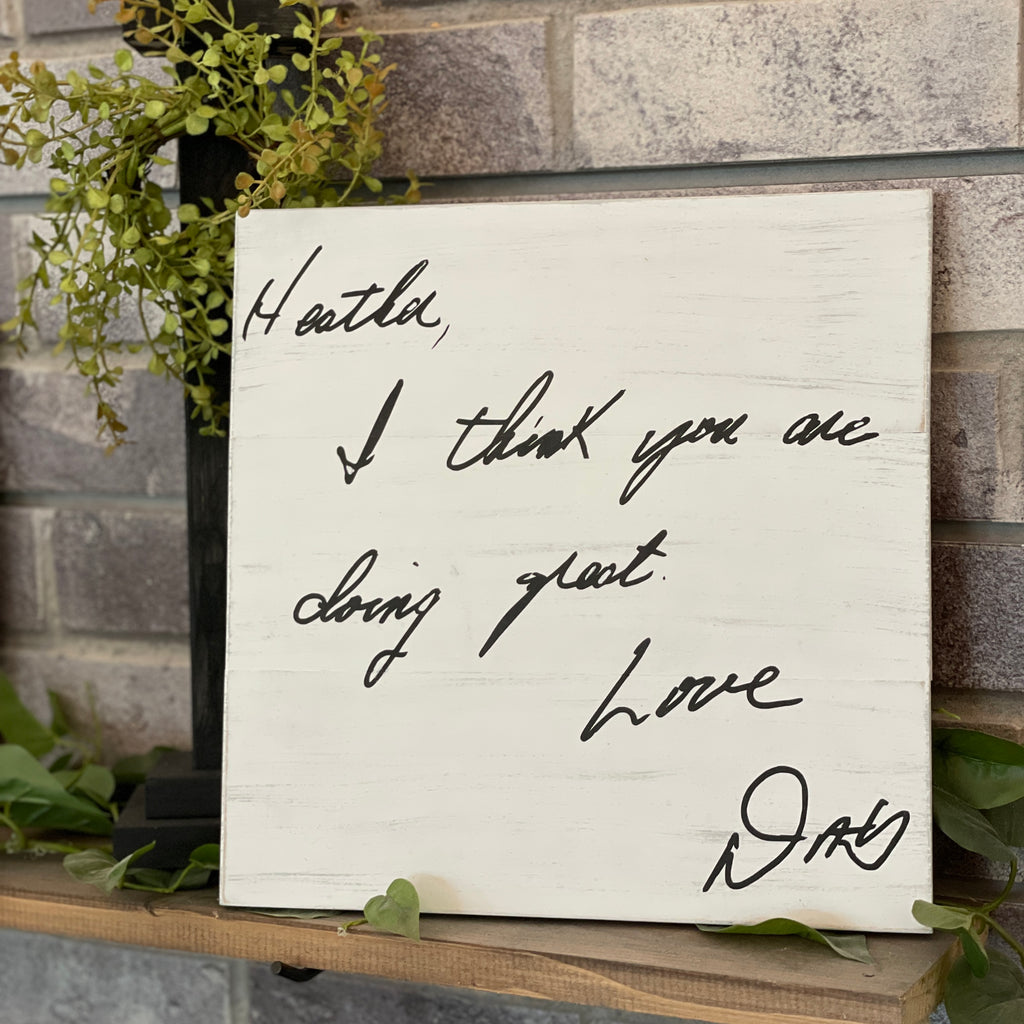 Heather,
I think you are
doing great.
Love
Dad